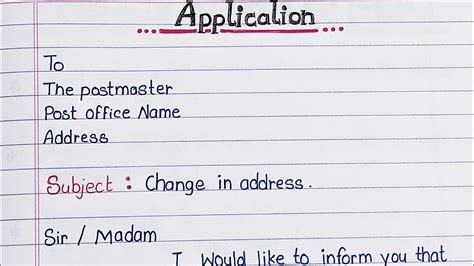 Application
To
The postmaster
Post office Name
Address
Subject : Change in address.
Sir / Madam
I would like to inform you that